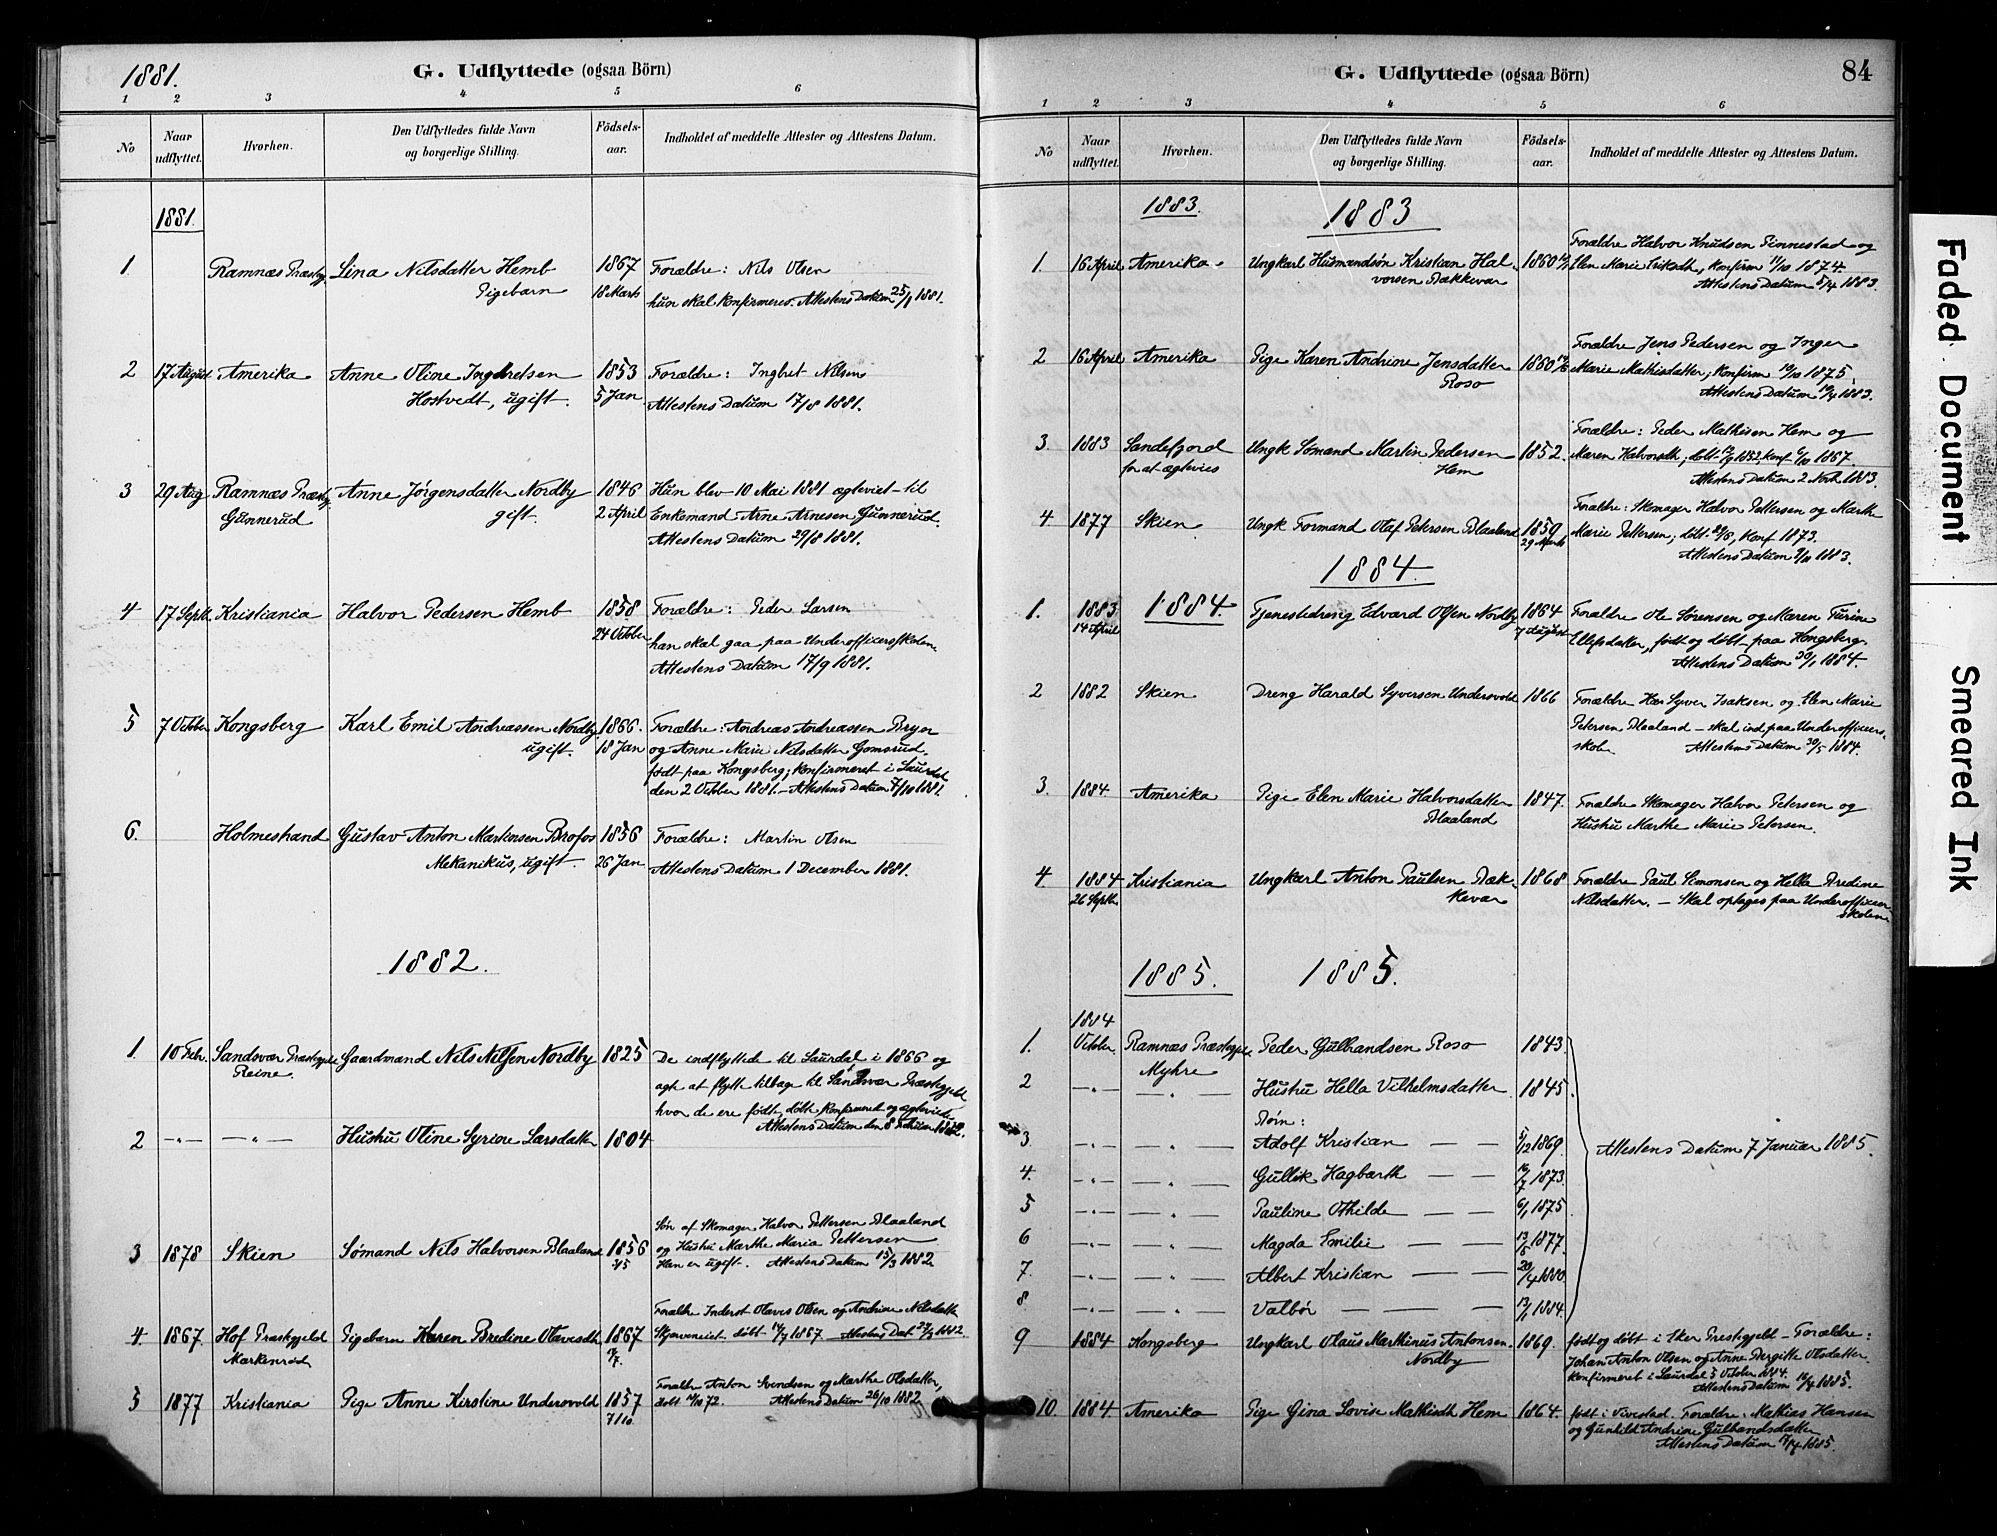 1881.
G. Udflyttede (ogsaa Börn)
1 2 3 4 5 6
No
Naar udflyttet.
Hvorhen.
Den Udflyttedes fulde Navn
og borgerlige Stilling.
Fødsels-
aar.
Indholdet af meddelte Attester og Attestens Datum.
1881.
1 Ramnæs Præstegj Lina Nilsdatter Hemb 1867 Forældre: Nils Olsen
Pigebarn 18 Marts hun skal konfirmeres. Attestens Datum 25/1 1881.
2 17 August Amerika Anne Oline Ingbretsen 1853 Forældre: Ingbret Nilsen
Hostvedt, ugift. 5 Jan Attestens Datum 17/8 1881.
3 29 Aug Ramnæs Præstegj Anne Jørgensdatter Nordby 1846 Hun blev 10 Mai 1881 ægteviet til
Gunnerud gift. 2 April Enkemand Arne Arnesen Gunnerud.
Attestens Datum 29/8 1881.
4 17 Septb. Kristiania Halvor Pedersen Hemb 1858 Forældre: Peder Larsen
24 October han skal gaa paa Underofficersskolen
Attestens Datum 17/9 1881.
5 7 October Kongsberg Karl Emil Andreassen Nordby 1866. Forældre: Andreas Andreassen Bryn
ugift. 18 Jan og Anne Marie Nilsdatter Gomsrud.
født paa Kongsberg; konfirmeret i Laurdal
den 2 October 1881. – Attestens Datum 7/10 1881.
6. Holmestrand Gustav Anton Martinsen Brofos 1856 Forældre: Martin Olsen
Mekanikus, ugift. 26 Jan Attestens Datum 1 December 1881.
1882.
1. 10 Febr. Sandsvær Præstegjeld Gaardmand Nils Nilsen Nordby 1825 De indflyttede til Laurdal i 1866 og
Reine. agte at flytte tilbage til Sandsvær Præstegjeld
hvor de ere født, døbt konfirmeret og ægteviede
Attestens Datum den 8 Februar 1882.
2 –„– –„– Hustru Oline Syrine Larsdatter 1804
Søn af Skomager Halvor Pettersen Blaaland
3 1878 Skien Sømand Nils Halvorsen Blaaland 1856 og Hustru Marthe Maria Pettersen
Han er ugift. Attestens Datum 15/3 1882
Forældre Inderst Olaves Olsen og Andrine Nilsdatter
4 1867. Hof Præstegjeld Pigebarn Karen Bredine Olavesdtr 1867 døbt 14/7 1867 Attestens Dat 1882
Markenrød
Forældre Anton Svendsen og Marthe Olsdatter,
5 1877 Kristiania Pige Anne Kirstine Undersvold 1857 døbt 72. Attestens Datum 26/10 1882
7/10.
G. Udflyttede (ogsaa Börn)
84
1 2 3 4 5 6
No
Naar udflyttet.
Hvorhen.
Den Udflyttedes fulde Navn
og borgerlige Stilling.
Fødsels-
aar.
Indholdet af meddelte Attester og Attestens Datum.
1883. 1883
Forældre Halvor Knudsen Pinnestad og
1. 16 April Amerika Ungkarl Husmandsøn Kristian Hal- 1860 Elen Marie Eriksdtr, Konfirm 11/10 1874.
vorsen Bækkevar Attestens Datum 5/4 1883.
Forældre Jens Pedersen og Inger
2 16 April Amerika Pige Karen Andrine Jensdatter 1860 Marie Mathisdatter; Konfirm 10/10 1875
Roso Attestens Datum 10/4 1883.
Forældre: Peder Mathisen Hem og
3 1883 Sandefjord Ungk Sømand Martin Pedersen 1852. Maren Halvorsdtr; døbt 1852, konf 6/10 1867.
for at ægtevies Hem Attestens Datum 2 Novb 1883.
Forældre: Skomager Halvor Pettersen og Marthe
4 1877 Skien Ungk Formand Olaf Petersen Blaaland 1859 Marie Pettersen; døbt , konf 1873.
29 Marts Attestens Datum 1883.
1884.
1. 1883 1884. Tjenestedreng Edvard Olsen Nordby 1864 Forældre Ole Sørensen og Maren Turine
14 April 7 August Ellefsdatter, født og døbt paa Kongsberg.
Attestens Datum 30/1 1884.
2 1882 Skien Dreng Harald Syversen Undersvold 1866 Forældre Syver Isaksen og Elen Marie
Petersen Blaaland – skal ind paa Underofficers-
skolen Attestens Datum 30/5 1884.
3. 1884 Amerika Pige Elen Marie Halvorsdatter 1847. Forældre Skomager Halvor Petersen og
Blaaland Hustru Marthe Marie Petersen.
4. 1884 Kristiania Ungkarl Anton Paulsen Bæk- 1868 Forældre Paul Simonsen og Hella Bredine
26 Septb. kevar Nilsdatter. – Skal optages paa Underofficer-
skolen
1885. 1885.
1884
1. Octbr. Ramnæs Præstegjeld Peder Gulbrandsen Roso 1843.
Myhre
2 –„– –„– Hustru Hella Vilhelmsdatter 1845.
Børn:
3 –„– –„– Adolf Kristian — — 5/12 1869. Attestens Datum 7 Januar 1885.
4. –„– –„– Gullik Hagbarth — 16/7 1873.
5 –„– –„– Pauline Othilde — — 6/1 1875
6 –„– –„– Magda Emilie — — 13/5 1877.
7. –„– –„– Albert Kristian — — 20/4 1880.
8 –„– –„– Valbor — — — 13/1 1884.
9 1884 Kongsberg Ungkarl Olaus Marthinus Antonsen 1869. født og døbt i Eker Prestegjeld – Forældre:
Nordby Johan Anton Olsen og Anne Bergitte Olsdatter.
konfirmeret i Laurdal 5 Octobr 1884.
Attestens Datum 16/4 1885.
10. 1884. Amerika Pige Gina Lovise Mathisdtr Hem 1864. født i Vivestad. Forældre: Mathias Hansen
og Gunhild Andrine Gulbrandsdatter
Attestens Datum 17/4 1885.
Faded Document
Smeared Ink